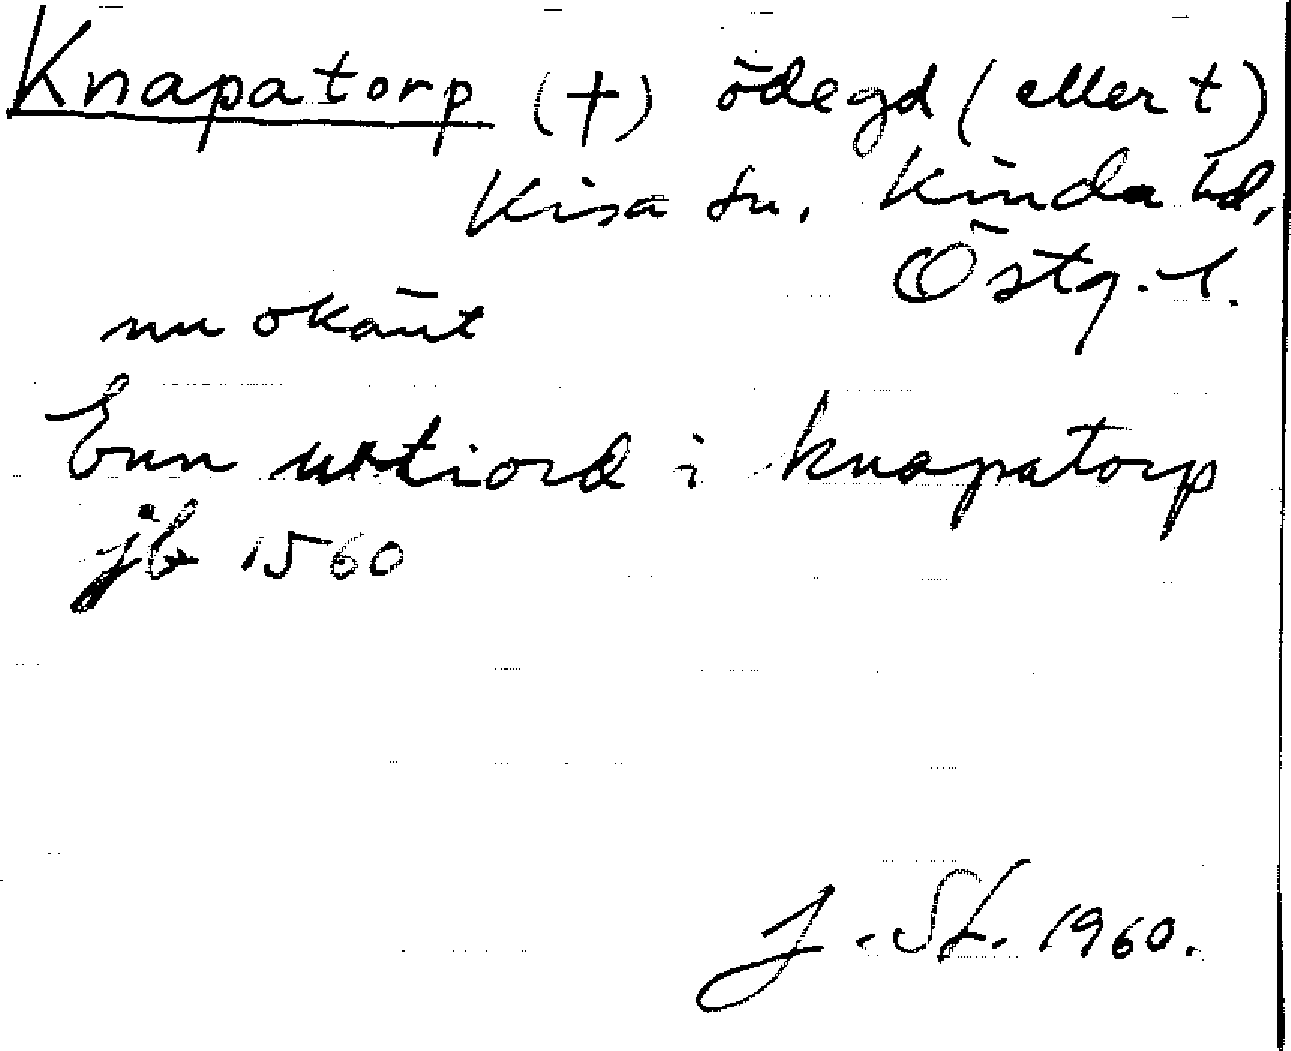 Knapatorp (†) ödegd (eller t)
Kisa sn. Kinda hd,
Östg. l.
nu okänt
Enn uttiord i knapatorp
jb 1560
J. St. 1960.